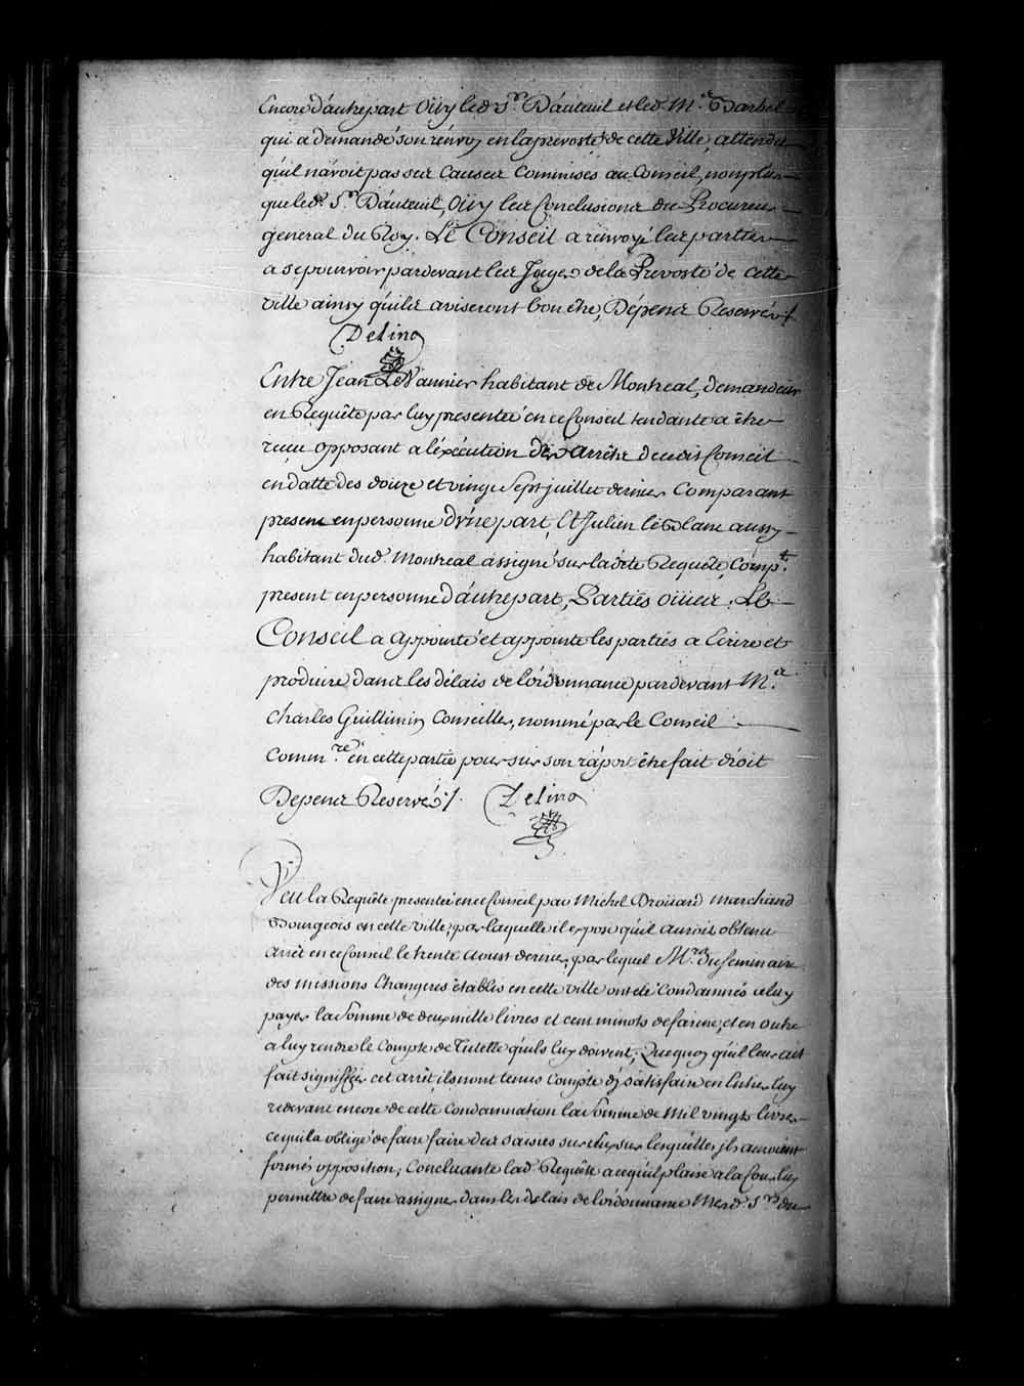 Encore d'autrepart Oüy led. Sr. Dauteuil et led. Me. Barbel
qui a demandé son renvoy en la prevosté de cette Ville, attendu
qu'il n'avoit pas ses Causes Commises au Conseil, non plus
que led. Sr. Dauteuil, Oüy les Conclusions du Procureur
general du Roy. Le Conseil a renvoyé les parties
a se pourvoir pardevant les Juges de la Prevosté de cette
ville ainsy qu'ils aviseront bon être, Dépens Reservés ./.
Delino
Entre Jean Le Vannier habitant de Montreal, demandeur
en Requête par luy presentée en ce Conseil tendante a être
reçu opposant a l'éxécution des arrêts de cedit Conseil
en datte des douze et vingt Sept juillet dernier Comparant
present en personne d'une part, Et Julien leblanc aussy
habitant dud. Montreal assigné sur ladite Requête, Compt.
present en personne d'autre part, Parties ouies. Le
Conseil a appointé et appointe les parties a Ecrire et
produire dans les délais de l'ordonnance pardevant Me.
Charles Guillimin Conseiller, nommé par le Conseil
Commre. en cette partie pour sur son raport être fait droit
Depens Reservés ./. Delino
Veu la Requête presentée en ce Conseil par Michel Drouard marchand
Bourgeois en cette ville, par laquelle il expose qu'il auroit obtenu
arrêt en ce Conseil le trente aoust dernier, par lequel Mrs. du Seminaire
des missions Etrangeres établis en cette ville ont été Condamnés a luy
payer la Somme de deux mille livres et cent minots de farine, et en outre
a luy rendre le Compte de Tutelle qu'ils luy doivent, Que quoy qu'il leur ait
fait signifier cet arrêt, ils n'ont tenus Compte d'y satisfaire en Entier luy
redevant encore de cette Condamnation la Somme de Mil vingt livres
ce qui l'a obligé de faire faire des saisies sur eux sur lesquelles ils auroient
formés opposition, Concluante lad. Requête a ce qu'il plaise a la Cour luy
permettre de faire assigner dans les delais de l'ordonnance lesd. Srs. du